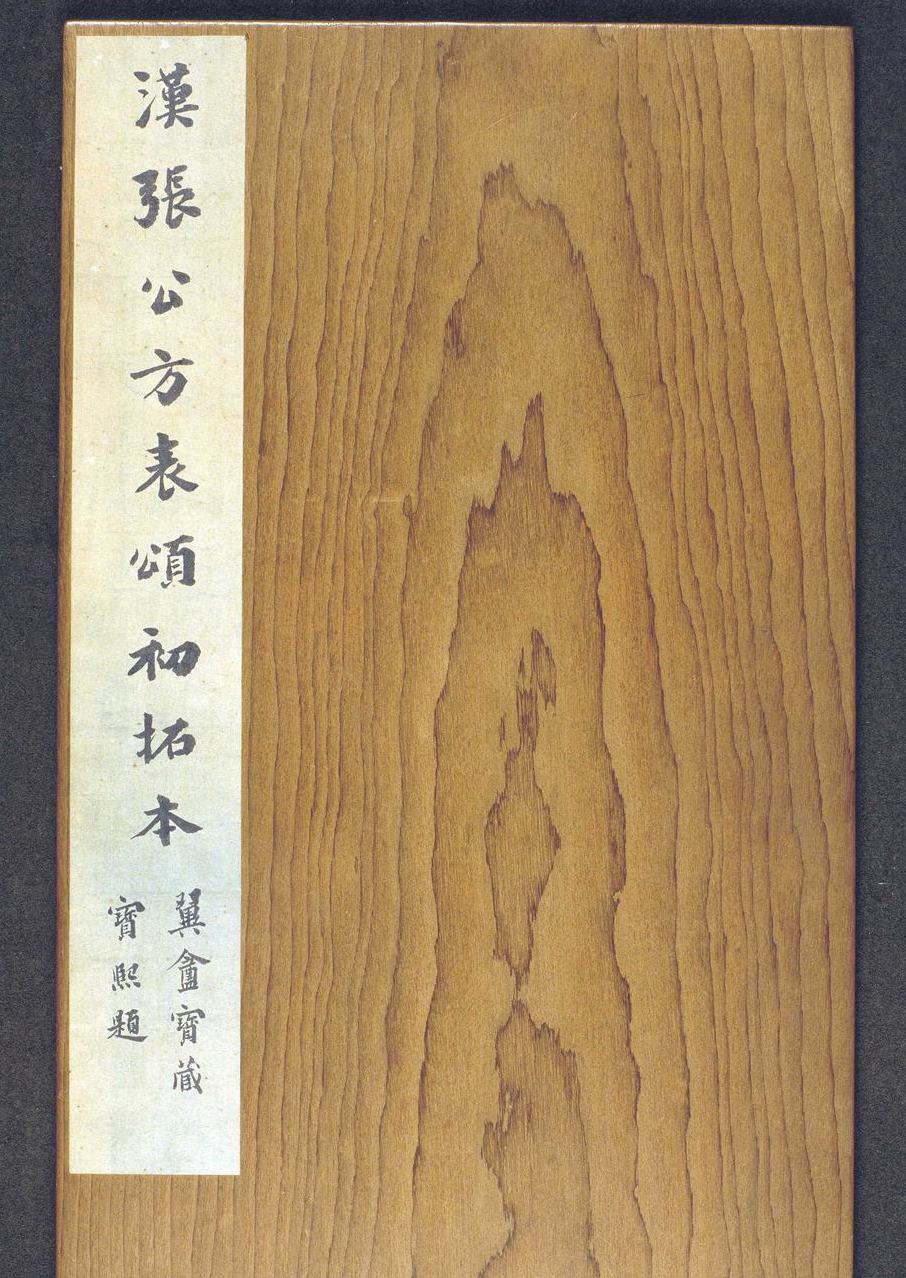 漢張公方表頌初拓本
翼盦寶藏
寶熙題